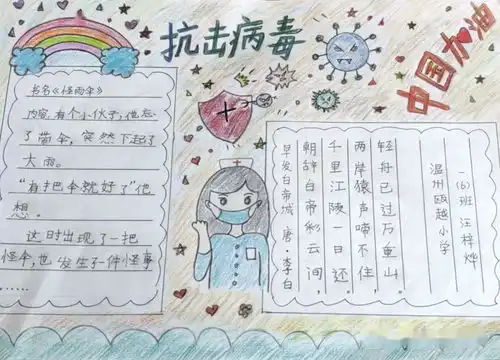 抗击病毒
中国加油
书名《怪雨伞》
内容:有个小伙子,他忘
了带伞,突然下起了
大雨。
“有把伞就好了”他
想。
这时出现了一把
怪伞,也发生了一件怪事
……
早发白帝城 唐·李白
朝辞白帝彩云间,
千里江陵一日还
两岸猿声啼不住,
轻舟已过万重山。
温州瓯越小学
一(6)班 汪梓烨